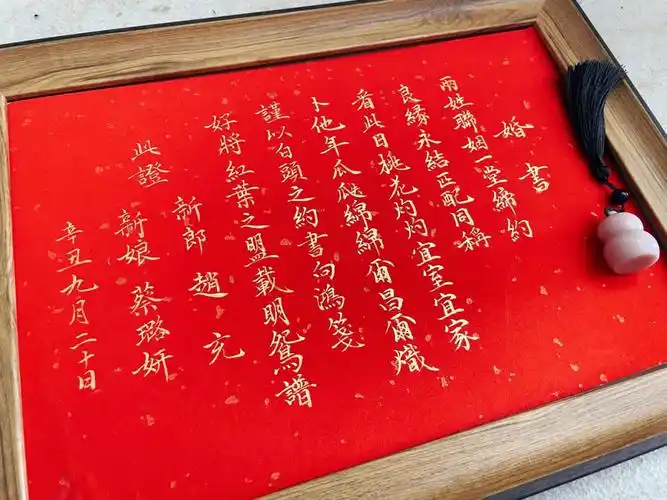 婚書
兩姓聯姻一堂締約
良緣永結匹配同稱
看此日桃花灼灼宜室宜家
卜他年瓜瓞綿綿爾昌爾熾
謹以白頭之約書向鴻箋
好將紅葉之盟載明鴛譜
此證
新郎 趙充
新娘 蔡璐妍
辛丑九月二十日